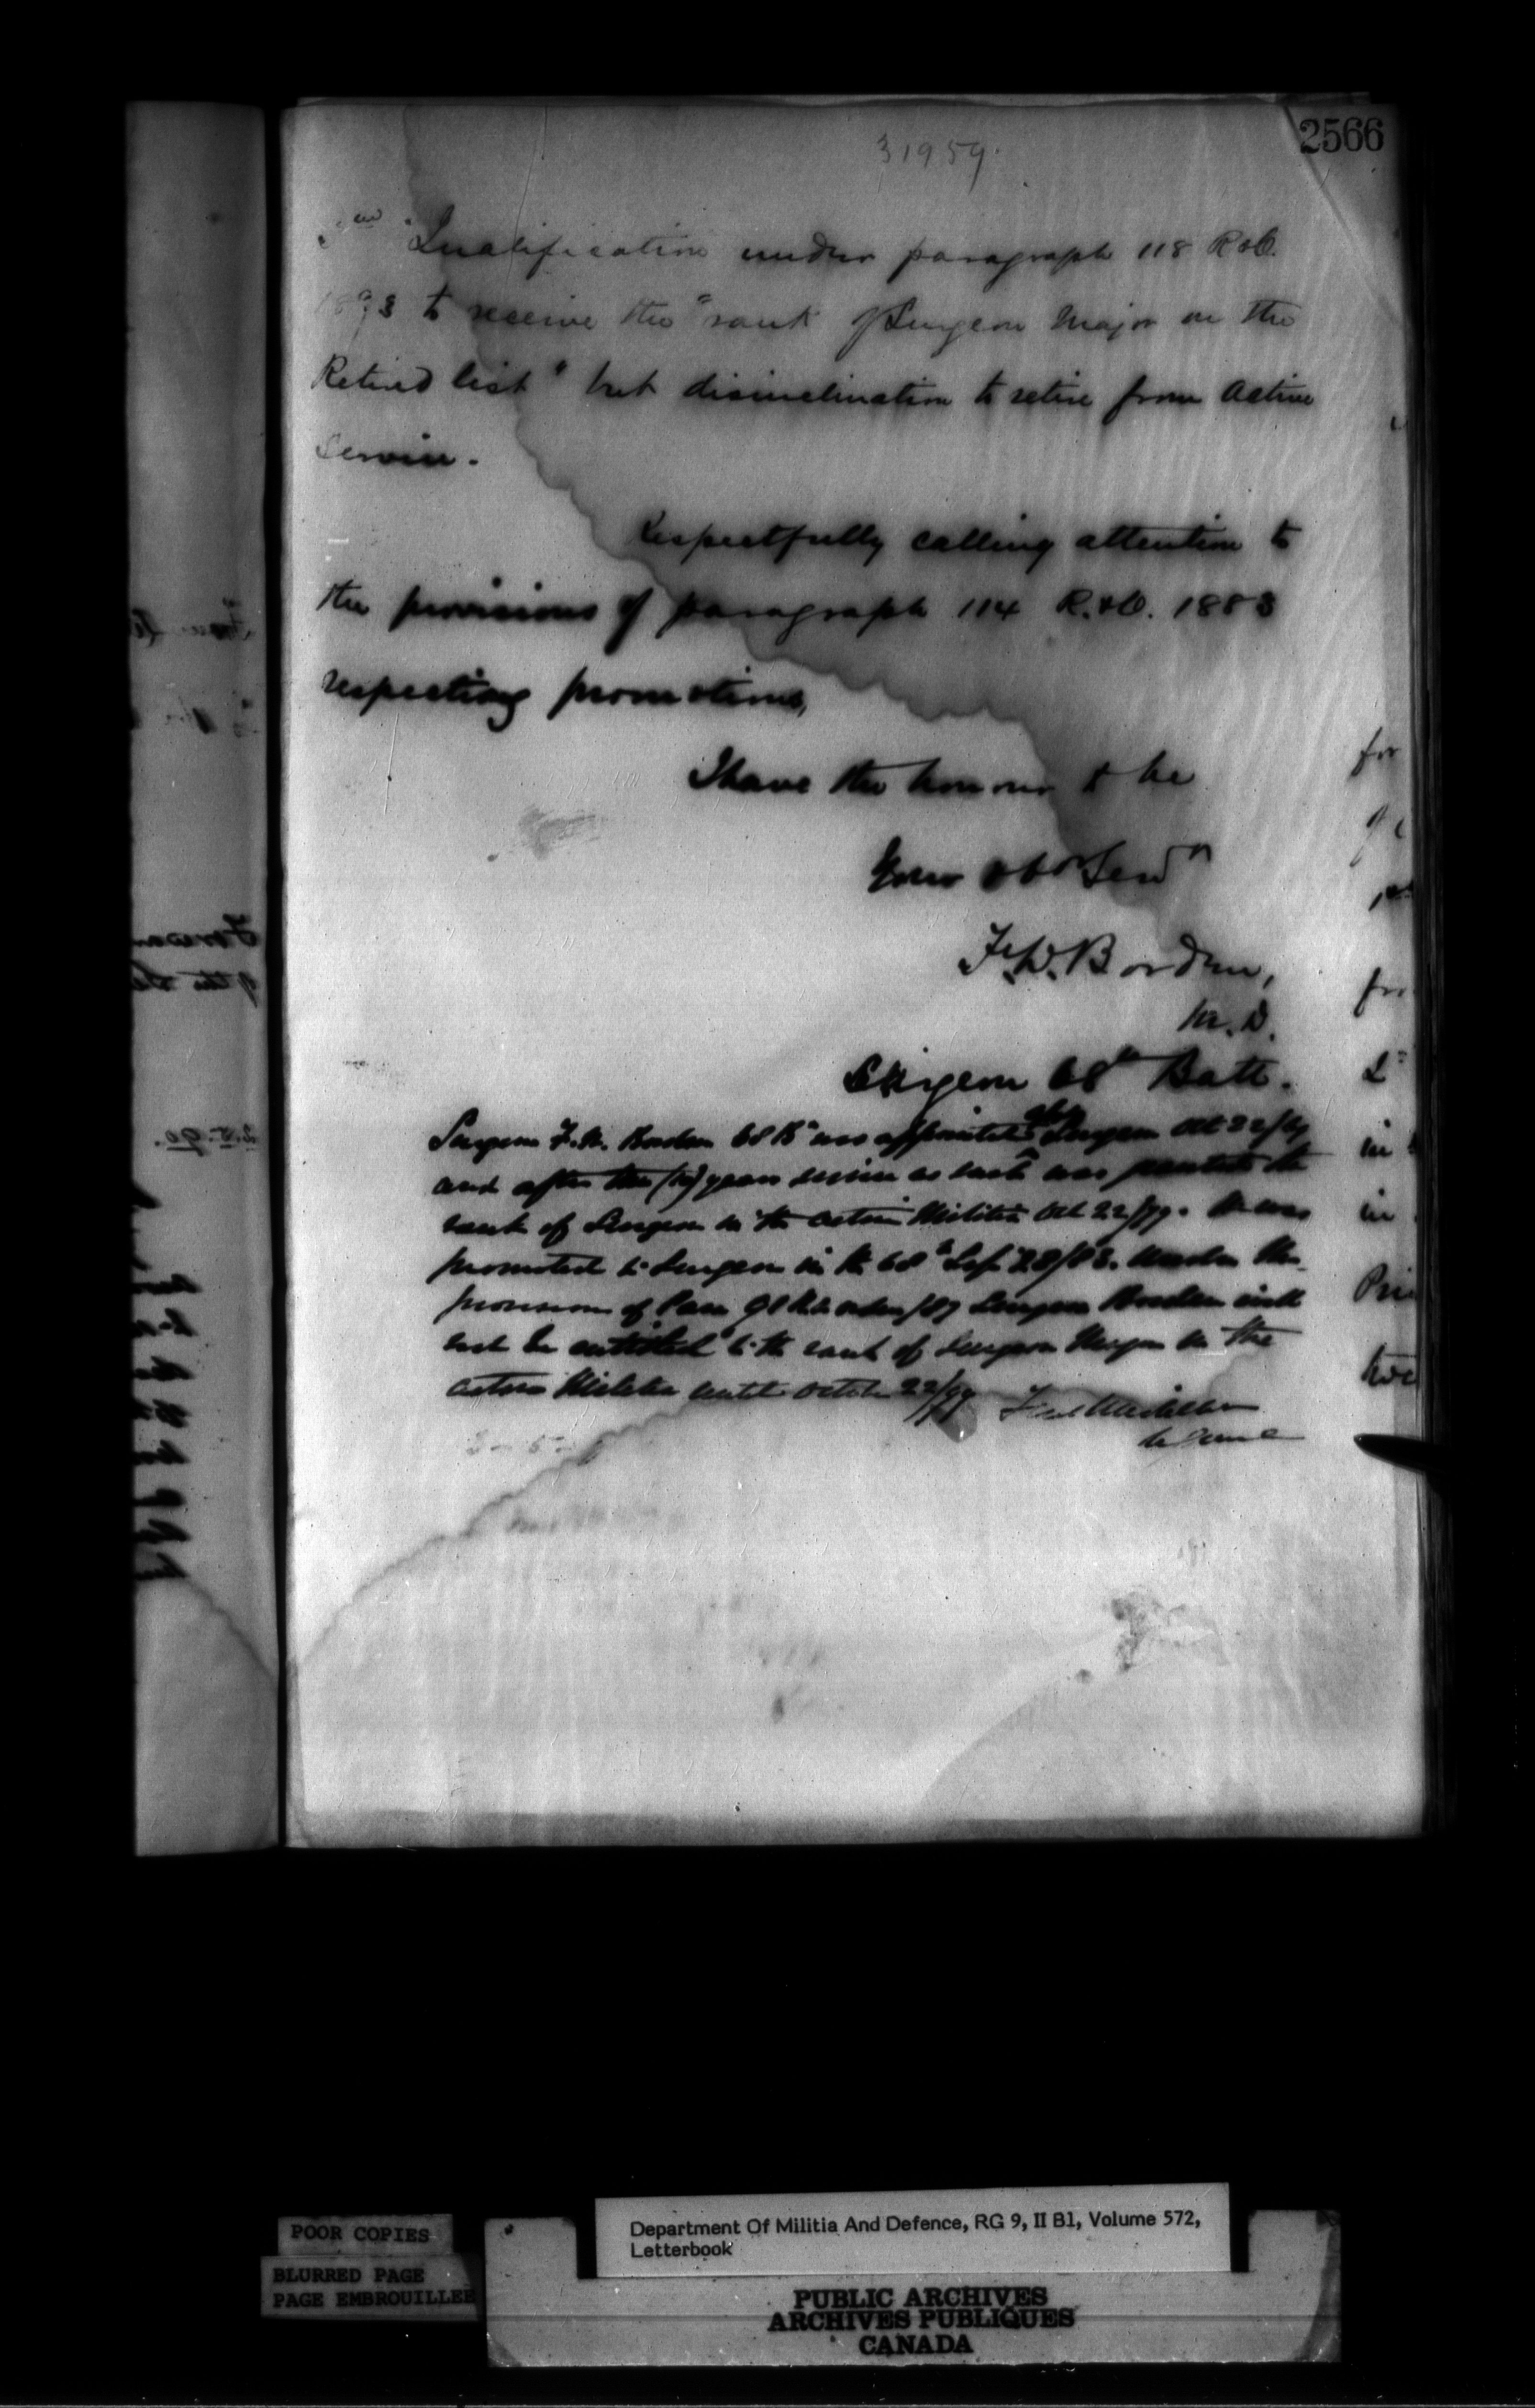 2566
31959.
Qualification under paragraph 118 R & O.
to receive the "rank of Surgeon Major on the
Retired list" but disinclination to retire from Active
Service.
Respectfully calling attention to
the provisions of paragraph 114 R. & O. 1883
respecting promotions,
I have the honour to be
Your obt Servt
F. W. Borden,
M.D.
Surgeon 68th Batt.
Surgeon F. W. Borden 68 B was appointed Asst Surgeon Oct 22/69
and after ten (10) years service as such was granted the
rank of Surgeon in the Active Militia Oct 22/79. He was
promoted to Surgeon in the 68th Sep 28/83. Under the
provisions of Para 98 R & Orders/87 Surgeon Borden will
not be entitled to the rank of Surgeon Major in the
Active Militia until October 22/99
for
fr
in
in
POOR COPIES
BLURRED PAGE
PAGE EMBROUILLEE
Department Of Militia And Defence, RG 9, II B1, Volume 572,
Letterbook
PUBLIC ARCHIVES
ARCHIVES PUBLIQUES
CANADA